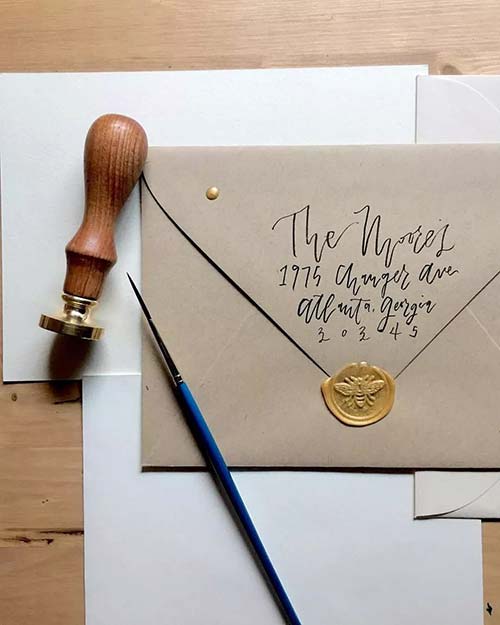 The Moore's
1975 Changer Ave
Atlanta, Georgia
30345